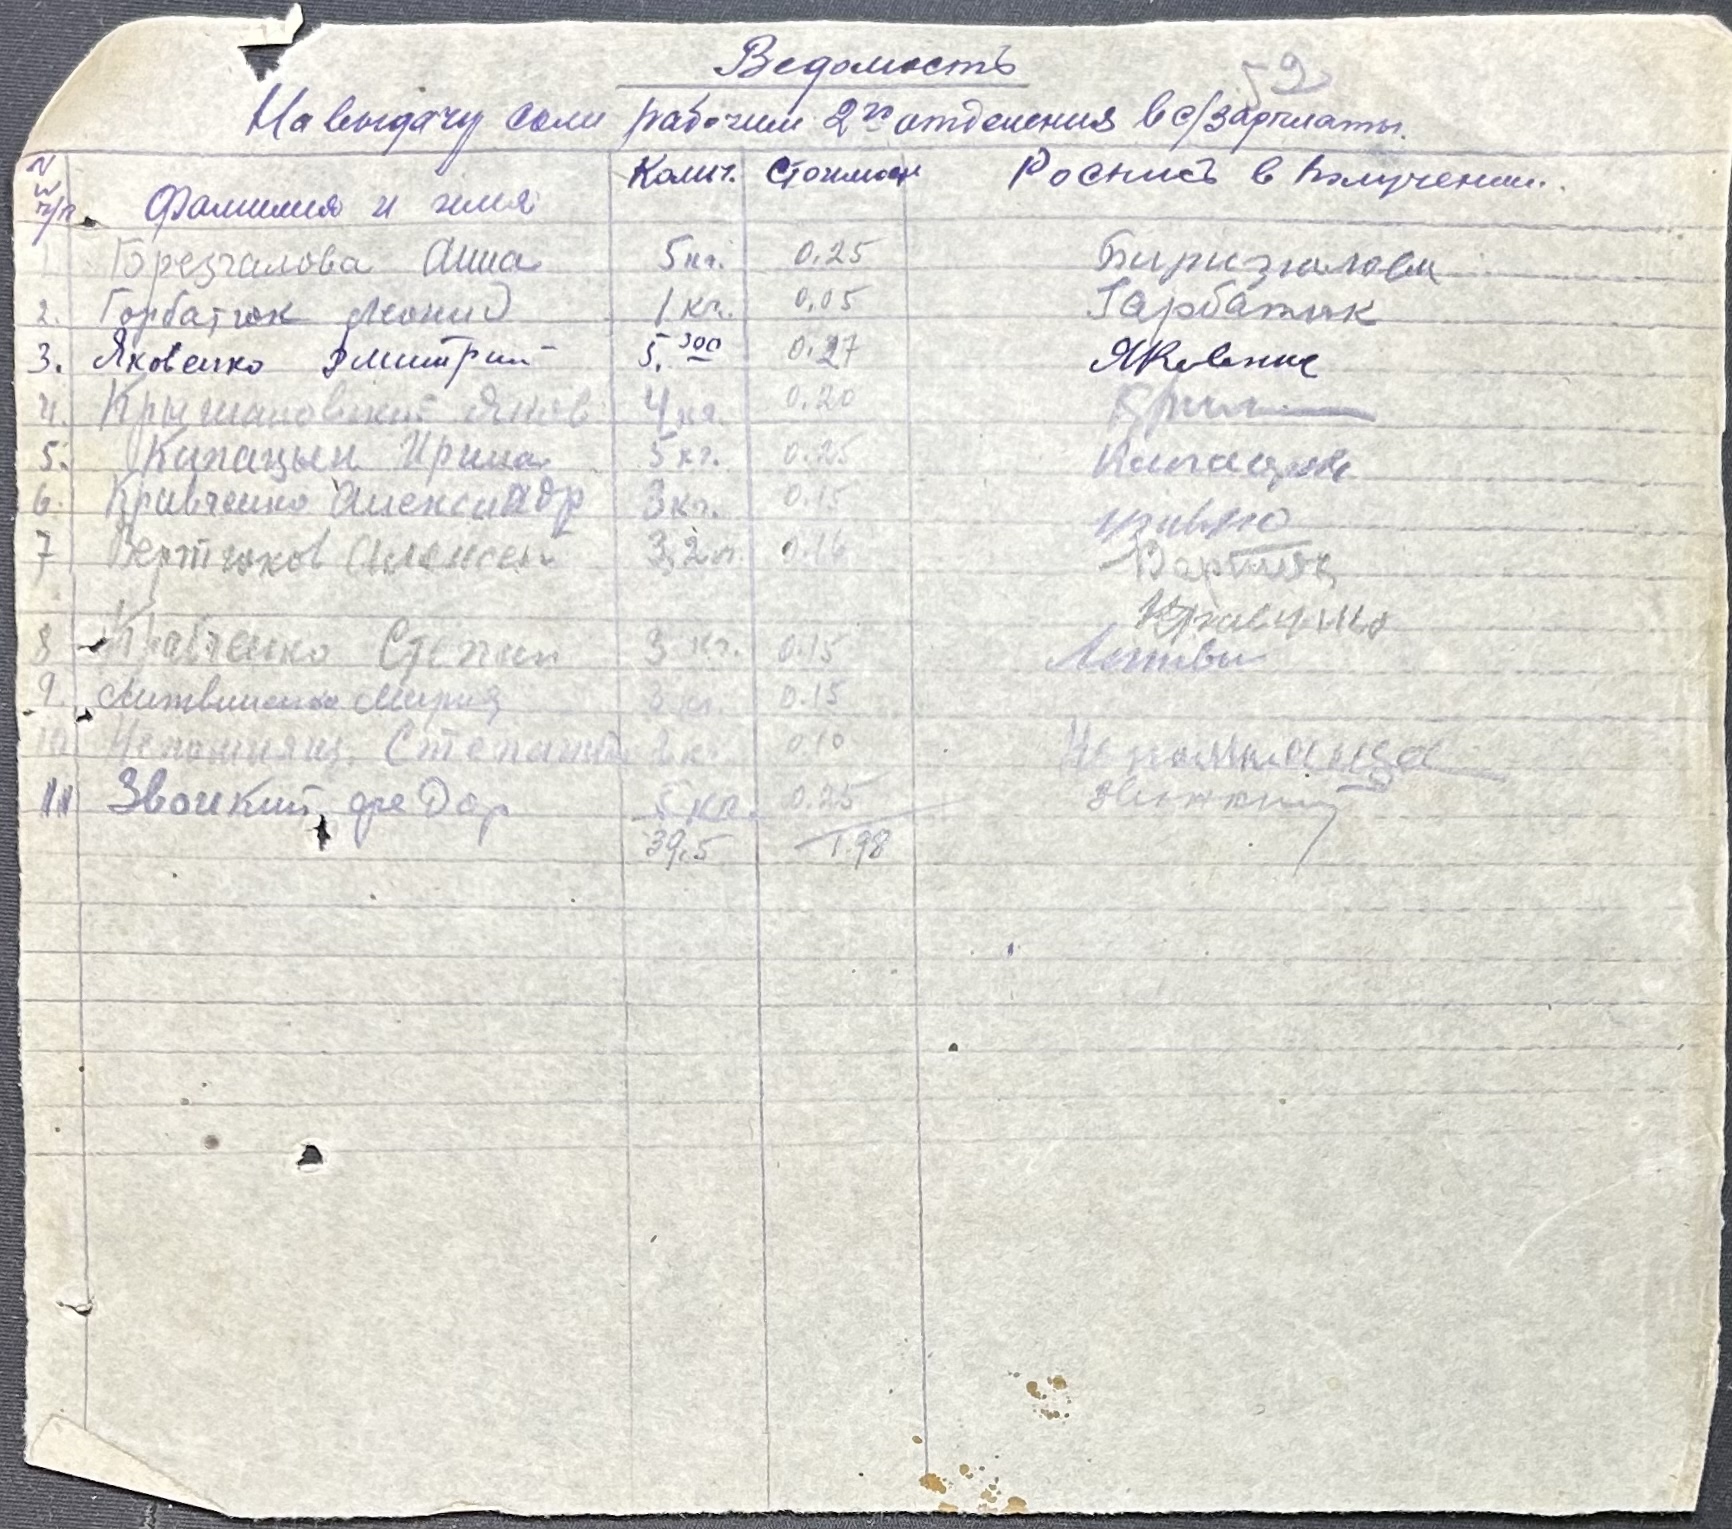 Ведомость
52
На выдачу соли рабочим 2го отделения в с/зарплаты.
N п/п Фамилия и имя Колич. Стоимост Роспись в получении.
1. Горезгалова Анна 5 кг. 0.25
2. Горбатюк Леонид 1 кг. 0.05 Гарбатюк
3. Яковенко Дмитрий 5.300 0.27 Яковенко
4. Крыжановский Яков 4 кг. 0.20
5. Капацын Ирина 5 кг. 0.25
6. Кравченко Александр 3 кг. 0.15
7 Вертюков Алексей 3,2 кг. 0.16
8 Кравченко Степан 3 кг. 0.15 Кравченко
9. Литвиненко Мария 3 кг 0.15 Литвин
10 Непомнящ. Степанида 2 кг 0.10 Непомнящая
11 Звонкий феодор 5 кг. 0.25
39,5 1.98